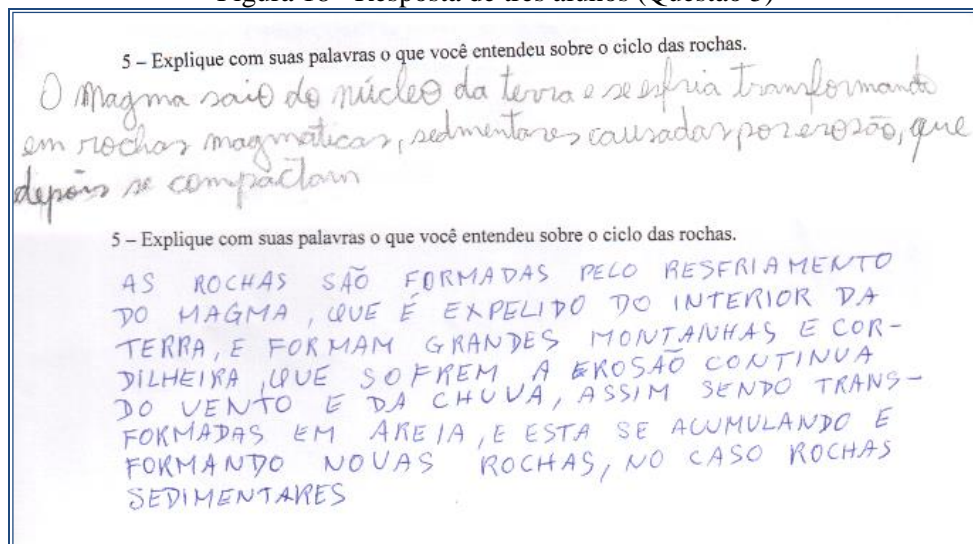 Figura 16 - Resposta de três alunos (Questão 5)
5 – Explique com suas palavras o que você entendeu sobre o ciclo das rochas.
O magma saio do núcleo da terra e se esfria transformando
em rochas magmáticas, sedmentares causadas por erozão, que
depois se compactam
5 – Explique com suas palavras o que você entendeu sobre o ciclo das rochas.
AS ROCHAS SÃO FORMADAS PELO RESFRIAMENTO
DO MAGMA, QUE É EXPELIDO DO INTERIOR DA
TERRA, E FORMAM GRANDES MONTANHAS E COR-
DILHEIRA, QUE SOFREM A EROSÃO CONTINUA
DO VENTO E DA CHUVA, ASSIM SENDO TRANS-
FORMADAS EM AREIA, E ESTA SE ACUMULANDO E
FORMANDO NOVAS ROCHAS, NO CASO ROCHAS
SEDIMENTARES